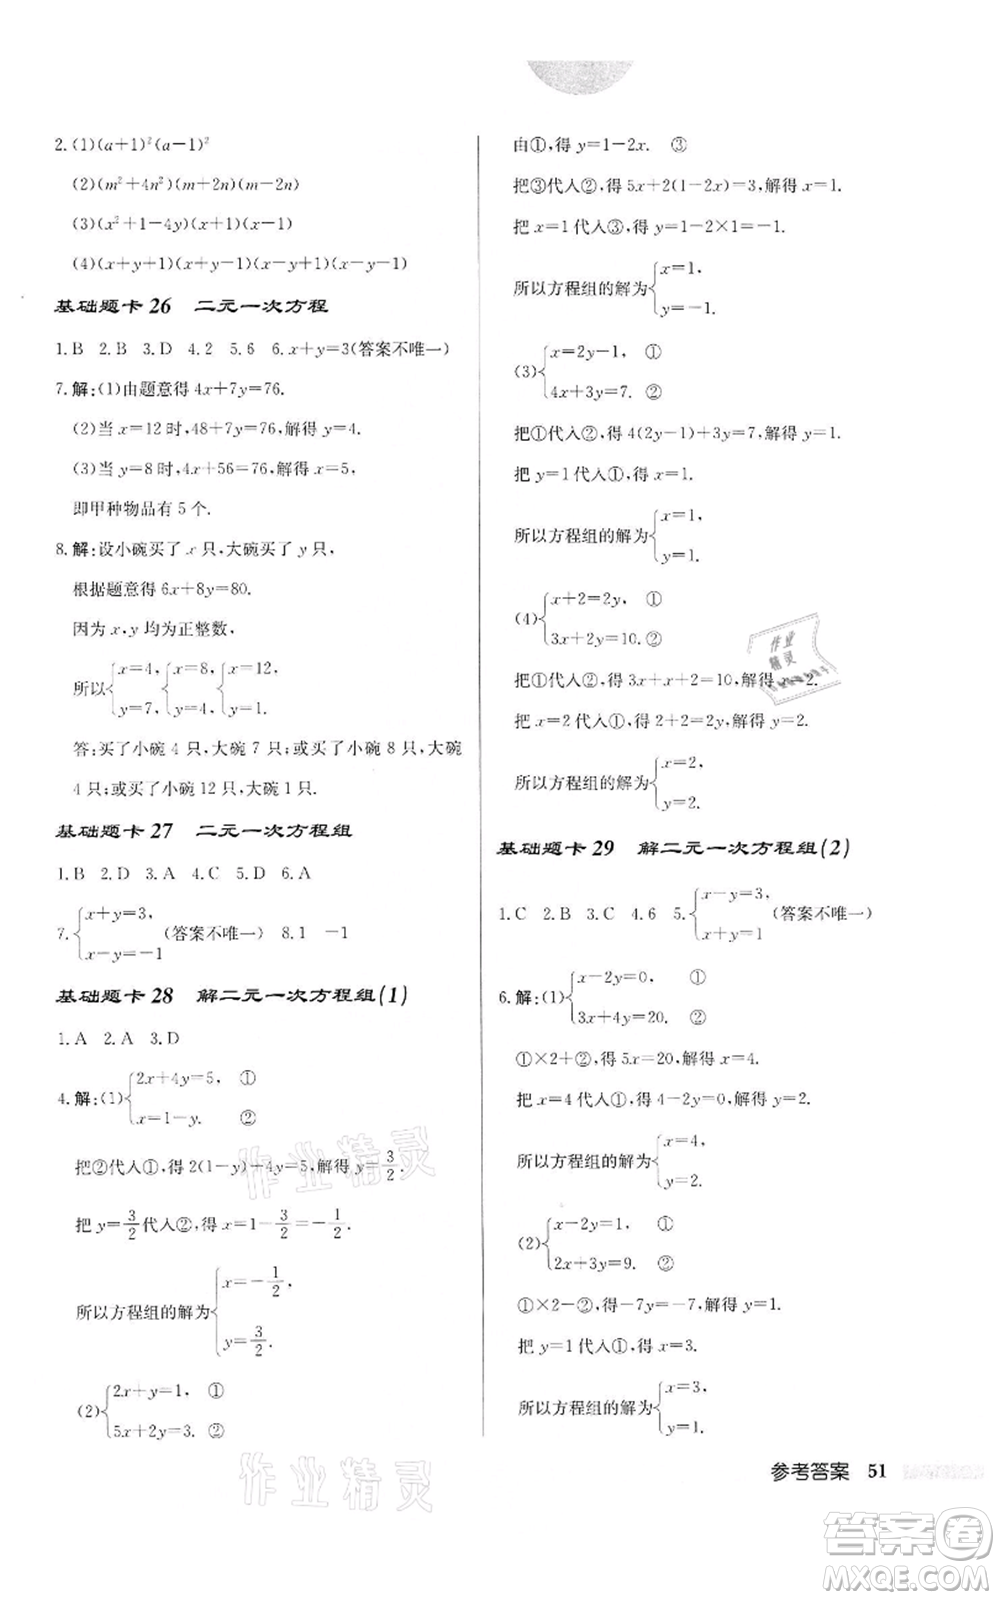 2.(1)(a+1)²(a-1)²
(2)(m²+4n²)(m+2n)(m-2n)
(3)(x²+1-4y)(x+1)(x-1)
(4)(x+y+1)(x+y-1)(x-y+1)(x-y-1)
基础题卡 26 二元一次方程
1.B 2.B 3.D 4.2 5.6 6.x+y=3(答案不唯一)
7.解:(1)由题意得 4x+7y=76.
(2)当 x=12 时,48+7y=76,解得 y=4.
(3)当 y=8 时,4x+56=76,解得 x=5,
即甲种物品有 5 个.
8.解:设小碗买了 x 只,大碗买了 y 只,
根据题意得 6x+8y=80.
因为 x,y 均为正整数,
所以{x=4, {x=8, {x=12,
y=7, y=4, y=1.
答:买了小碗 4 只,大碗 7 只;或买了小碗 8 只,大碗
4 只;或买了小碗 12 只,大碗 1 只.
基础题卡 27 二元一次方程组
1.B 2.D 3.A 4.C 5.D 6.A
7.{x+y=3, x-y=-1 (答案不唯一) 8.1 -1
基础题卡 28 解二元一次方程组(1)
1.A 2.A 3.D
4.解:(1){2x+4y=5, ①
x=1-y. ②
把②代入①,得 2(1-y)+4y=5,解得 y=3/2.
把 y=3/2代入②,得 x=1-3/2=-1/2.
所以方程组的解为{x=-1/2,
y=3/2.
(2){2x+y=1, ①
5x+2y=3. ②
由①,得 y=1-2x. ③
把③代入②,得 5x+2(1-2x)=3,解得 x=1.
把 x=1 代入③,得 y=1-2×1=-1.
所以方程组的解为{x=1,
y=-1.
(3){x=2y-1, ①
4x+3y=7. ②
把①代入②,得 4(2y-1)+3y=7,解得 y=1.
把 y=1 代入①,得 x=1.
所以方程组的解为{x=1,
y=1.
(4){x+2=2y, ①
3x+2y=10. ②
把①代入②,得 3x+x+2=10,解得 x=2.
把 x=2 代入①,得 2+2=2y,解得 y=2.
所以方程组的解为{x=2,
y=2.
基础题卡 29 解二元一次方程组(2)
1.C 2.B 3.C 4.6 5.{x-y=3, x+y=1 (答案不唯一)
6.解:(1){x-2y=0, ①
3x+4y=20. ②
①×2+②,得 5x=20,解得 x=4.
把 x=4 代入①,得 4-2y=0,解得 y=2.
所以方程组的解为{x=4,
y=2.
(2){x-2y=1, ①
2x+3y=9. ②
①×2-②,得-7y=-7,解得 y=1.
把 y=1 代入①,得 x=3.
所以方程组的解为{x=3,
y=1.
参考答案 51
作业精灵
作业精灵
作业精灵
答案卷
MXQE.COM